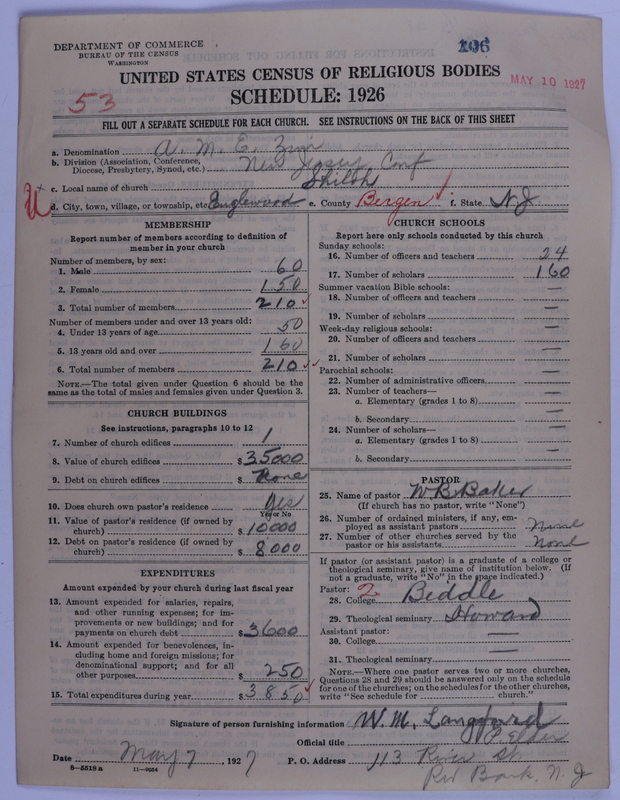 DEPARTMENT OF COMMERCE
BUREAU OF THE CENSUS
WASHINGTON
106
UNITED STATES CENSUS OF RELIGIOUS BODIES
MAY 10 1927
53
SCHEDULE: 1926
FILL OUT A SEPARATE SCHEDULE FOR EACH CHURCH. SEE INSTRUCTIONS ON THE BACK OF THIS SHEET
a. Denomination A. M. E. Zion
b. Division (Association, Conference, Diocese, Presbytery, Synod, etc.) New Jersey Conf
c. Local name of church Shiloh
d. City, town, village, or township, etc. Englewood e. County Bergen f. State N.J
MEMBERSHIP
Report number of members according to definition of member in your church
Number of members, by sex:
1. Male 60
2. Female 150
3. Total number of members 210
Number of members under and over 13 years old:
4. Under 13 years of age 50
5. 13 years old and over 160
6. Total number of members 210
NOTE.—The total given under Question 6 should be the same as the total of males and females given under Question 3.
CHURCH BUILDINGS
See instructions, paragraphs 10 to 12
7. Number of church edifices 1
8. Value of church edifices $35000
9. Debt on church edifices $ None
10. Does church own pastor's residence Yes
Yes or No
11. Value of pastor's residence (if owned by church) $10000
12. Debt on pastor's residence (if owned by church) $8000
EXPENDITURES
Amount expended by your church during last fiscal year
13. Amount expended for salaries, repairs, and other running expenses; for improvements or new buildings; and for payments on church debt $3600
14. Amount expended for benevolences, including home and foreign missions; for denominational support; and for all other purposes $250
15. Total expenditures during year $3850
CHURCH SCHOOLS
Report here only schools conducted by this church
Sunday schools:
16. Number of officers and teachers 24
17. Number of scholars 160
Summer vacation Bible schools: —
18. Number of officers and teachers —
19. Number of scholars —
Week-day religious schools: —
20. Number of officers and teachers —
21. Number of scholars —
Parochial schools: —
22. Number of administrative officers —
23. Number of teachers—
a. Elementary (grades 1 to 8) —
b. Secondary —
24. Number of scholars—
a. Elementary (grades 1 to 8) —
b. Secondary —
PASTOR
25. Name of pastor W. B. Baker
(If church has no pastor, write "None")
26. Number of ordained ministers, if any, employed as assistant pastors None
27. Number of other churches served by the pastor or his assistants None
If pastor (or assistant pastor) is a graduate of a college or theological seminary, give name of institution below. (If not a graduate, write "No" in the space indicated.)
Pastor: 2
28. College Biddle
29. Theological seminary Howard
Assistant pastor: —
30. College —
31. Theological seminary
NOTE.—Where one pastor serves two or more churches, Questions 28 and 29 should be answered only on the schedule for one of the churches; on the schedules for the other churches, write "See schedule for church."
Signature of person furnishing information W. M. Langford
Official title P. Elder
Date May 7, 1927 P. O. Address 113 River St
8-5518a 11-9034
Red Bank, N. J